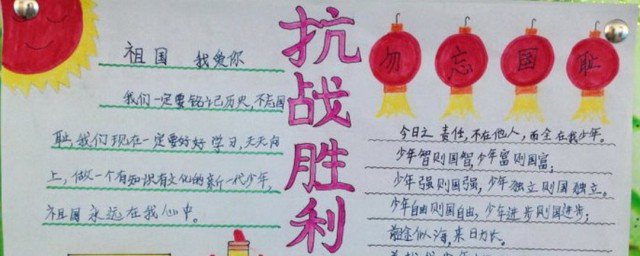 祖国 我爱你
我们一定要铭记历史,不忘国
耻,我们现在一定要好好学习,天天向
上,做一个有知识有文化的新一代少年,
祖国永远在我心中。
抗战胜利
勿忘国耻
今日之责任,不在他人,而全在我少年。
少年智则国智,少年富则国富;
少年强则国强,少年独立则国独立。
少年自由则国自由,少年进步则国进步;
前途似海,来日方长。